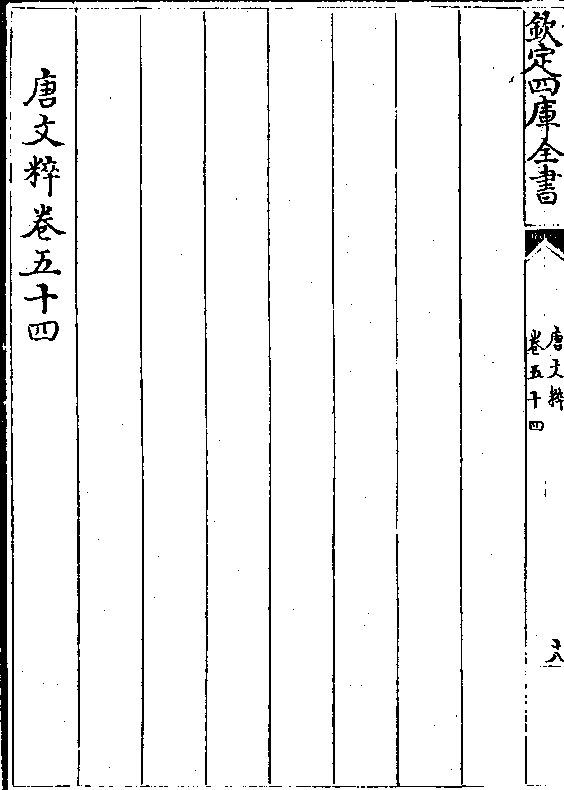 欽定四庫全書
唐文粹
卷五十四
十八
唐文粹卷五十四